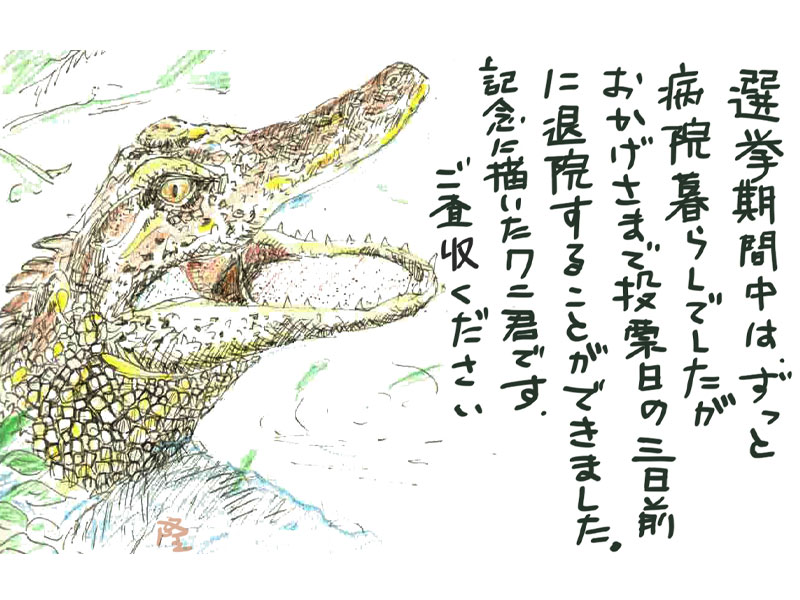 選挙期間中は、ずっと
病院暮らしでしたが
おかげさまで投票日の三日前
に退院することができました。
記念に描いたワニ君です.
ご査収ください
隆